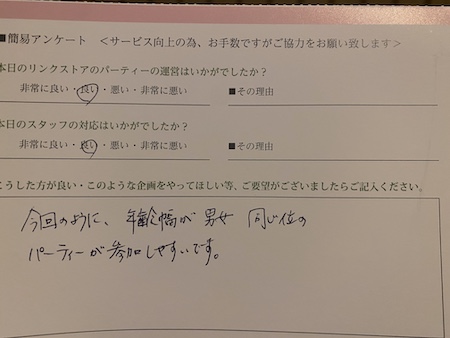 ■簡易アンケート <サービス向上の為、お手数ですがご協力をお願い致します>
本日のリンクストアのパーティーの運営はいかがでしたか?
非常に良い・良い・悪い・非常に悪い ■その理由
本日のスタッフの対応はいかがでしたか?
非常に良い・良い・悪い・非常に悪い ■その理由
こうした方が良い・このような企画をやってほしい等、ご要望がございましたらご記入ください。
今回のように、年齢幅が男女同じ位の
パーティーが参加しやすいです。